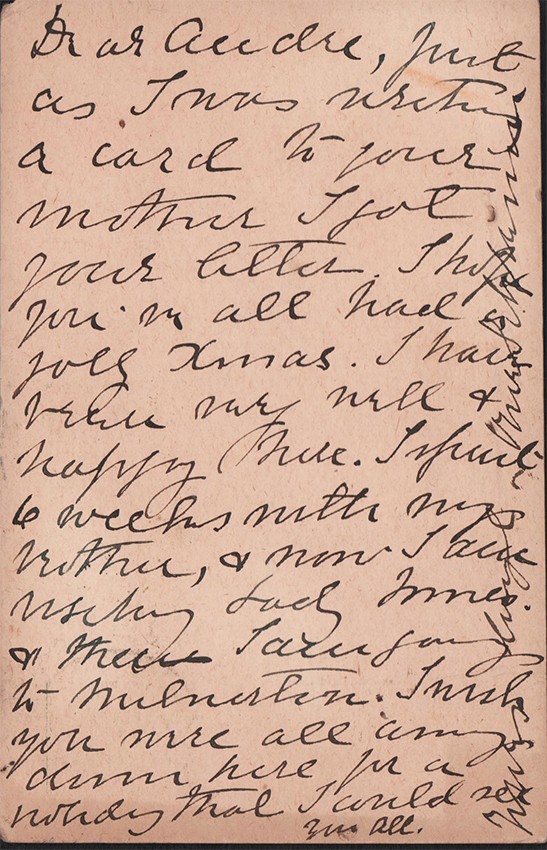 Dear Andre, Just
as I was writing
a card to your
mother I got
your letter. I hope
you all had a
jolly Xmas. I have
been very well &
happy here. I spent
6 weeks with my
brother, & now I am
visiting Lady Innes.
& then I am going
to Milnerton. I wish
you were all coming
down here for a
holiday that I could see
you all.